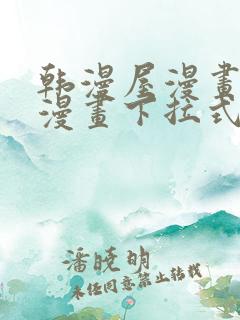 韩漫屋漫畫
漫畫下拉式
潘晓明
未经同意禁止转载